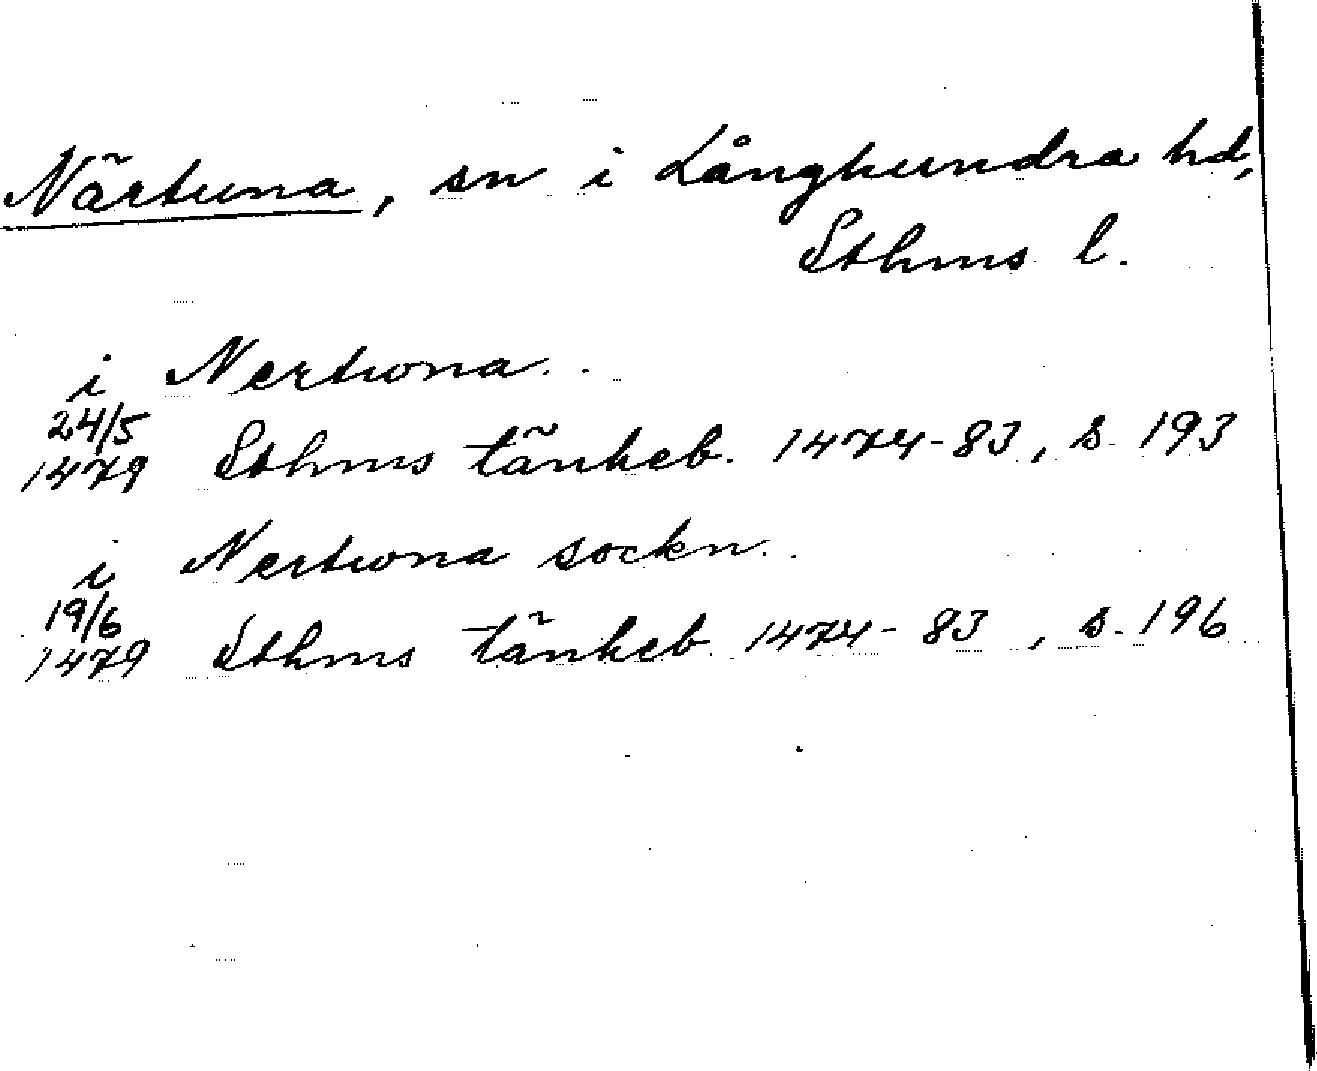 Närtuna, sn i Långhundra hd,
Sthms l.
i Nertwna.
24/5
1479 Sthms tänkeb. 1474-83, s. 193
i Nertwna sockn.
19/6
1479 Sthms tänkeb 1474-83, s. 196